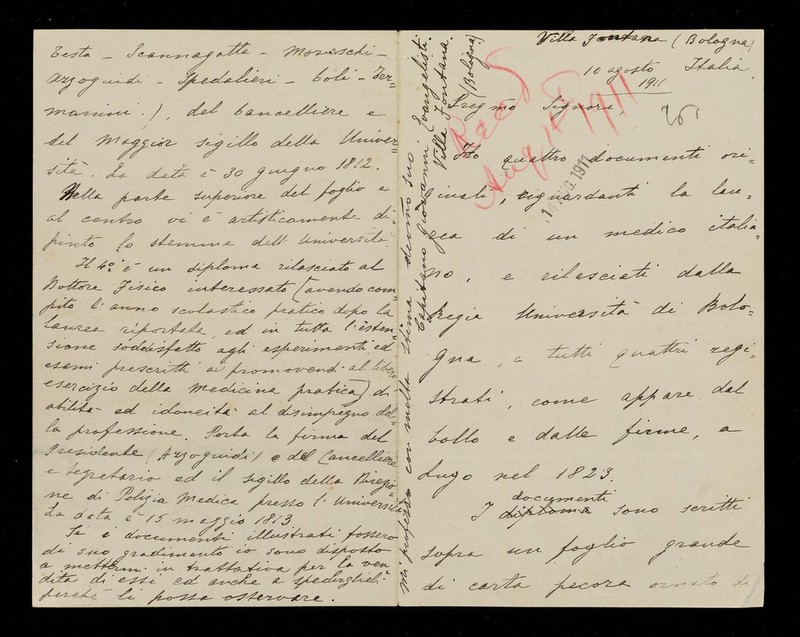 Villa Fontana (Bologna)
10 agosto Italia
1911
Pregmo Signore,
Ho quattro documenti ori=
ginali, riguardanti la lau=
rea di un medico italia=
no, e rilasciati dalla
Regia Università di Bolo=
gna, e tutti quattri regi=
strati, come appare dal
bollo e dalle firme, a
Lugo nel 1823.
documenti
I diploma sono scritti
sopra un foglio grande
di carta pecora ornato di
Rec'd
Aug 15 1911
AUG. 1911
Testa - Scannagatta - Moreschi -
Azzoguidi - Spedalieri - Coli - Ter=
manini.), del Cancelliere e
del Maggior sigillo della Univer=
sità. La data è 30 giugno 1812.
Nella parte superiore del foglio e
al centro vi è artisticamente di=
pinto lo stemma dell' Università.
Il 4º è un diploma rilasciato al
Dottore Fisico interessato (avendo com=
pito l'anno scolastico pratico dopo la
laurea riportata, ed in tutta l'esten=
sione soddisfatto agli esperimenti ed
esami prescritti ai promovendi al libero
esercizio della medicina pratica) di
abilità ed idoneità al disimpegno del=
la professione. Porta la firma del
Presidente (Azzoguidi) e del Cancelliere
e Segretario ed il sigillo della Direzio=
ne di Polizia Medica presso l'Università.
La data è 15 maggio 1813.
Se i documenti illustrati fossero
di suo gradimento io sono disposto
a mettermi in trattativa per la ven
dita di essi ed anche a spedirglieli
perché li possa osservare.
Mi professo con molta stima devmo suo
Capitano Giovanni Evangelisti.
Villa Fontana.
(Bologna)